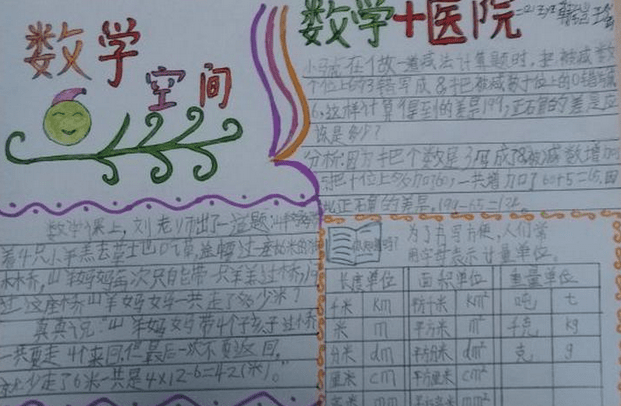 数学
空间
数学+医院
小马虎在做一道减法计算题时,把被减数
个位上的3错写成8,把被减数十位上的0错写成
6,这样计算得到的差是199,正确的差应
该是多少?
分析:因为把个数是3写成8被减数增加
5,把十位上 一共增加了60+5=65,因
此正确的差是,199-65=134。
数学课上,刘老师出了一道题:山羊妈妈
木桥,山羊妈妈每次只能带一只羊羔过桥,
过这座桥山羊妈妈一共走了多少米?
真真说:山羊妈妈带4个孩子过桥
一共要走4个来回,但最后一次不要返回,
就少走了6米一共是4×12-6=42(米)。
你知道吗?
为了书写方便,人们常
用字母表示计量单位。
长度单位 面积单位 重量单位
千米 km 平方千米 km² 吨 t
米 m 平方米 m² 千克 kg
分米 dm 平方分米 dm² 克 g
厘米 cm 平方厘米 cm²
毫米 mm 平方毫米 mm²